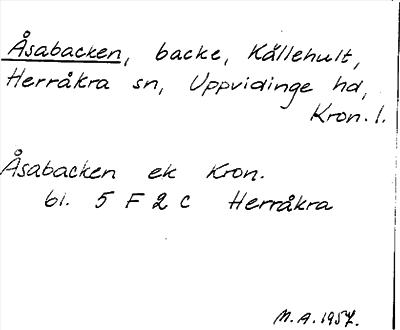 Åsabacken, backe, Källehult,
Herråkra sn, Uppvidinge hd,
Kron. l.
Åsabacken ek Kron.
bl. 5 F 2 c Herråkra
M.A. 1957.